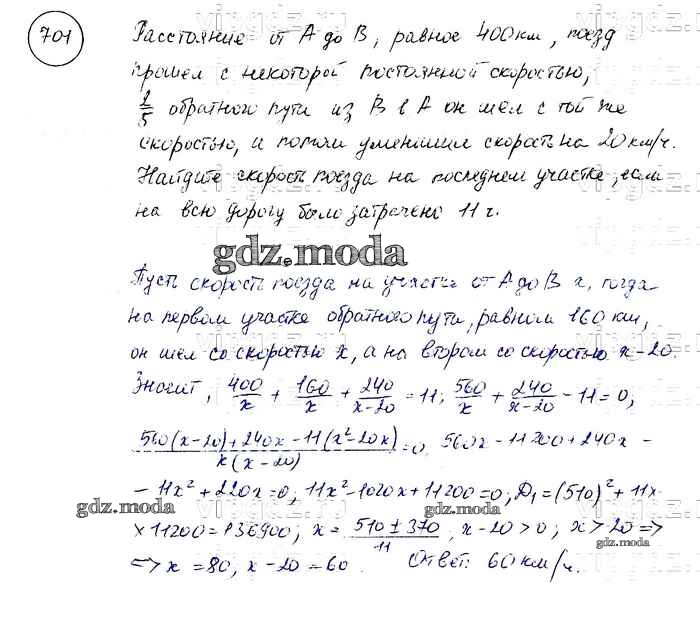 701
Расстояние от A до B, равное 400 км, поезд
прошел с некоторой постоянной скоростью,
2/5 обратного пути из B в A он шел с той же
скоростью, и потом уменьшил скорость на 20 км/ч.
Найдите скорость поезда на последнем участке, если
на всю дорогу было затрачено 11 ч.
gdz.moda
Пусть скорость поезда на участке от A до B x, тогда
на первом участке обратного пути, равном 160 км,
он шел со скоростью x, а на втором со скоростью x-20.
Значит, 400/x + 160/x + 240/x-20 = 11; 560/x + 240/x-20 - 11 = 0;
560(x-20)+240x-11(x²-20x)/x(x-20) = 0, 560x - 11200 + 240x -
- 11x² + 220x = 0; 11x² - 1020x + 11200 = 0; D₁ = (510)² + 11x
gdz.moda
x 11200 = 136900; x = 510 ± 370/11, x-20 > 0; x > 20 =>
gdz.moda
=> x = 80, x - 20 = 60 Ответ: 60 км/ч.
gdz.moda